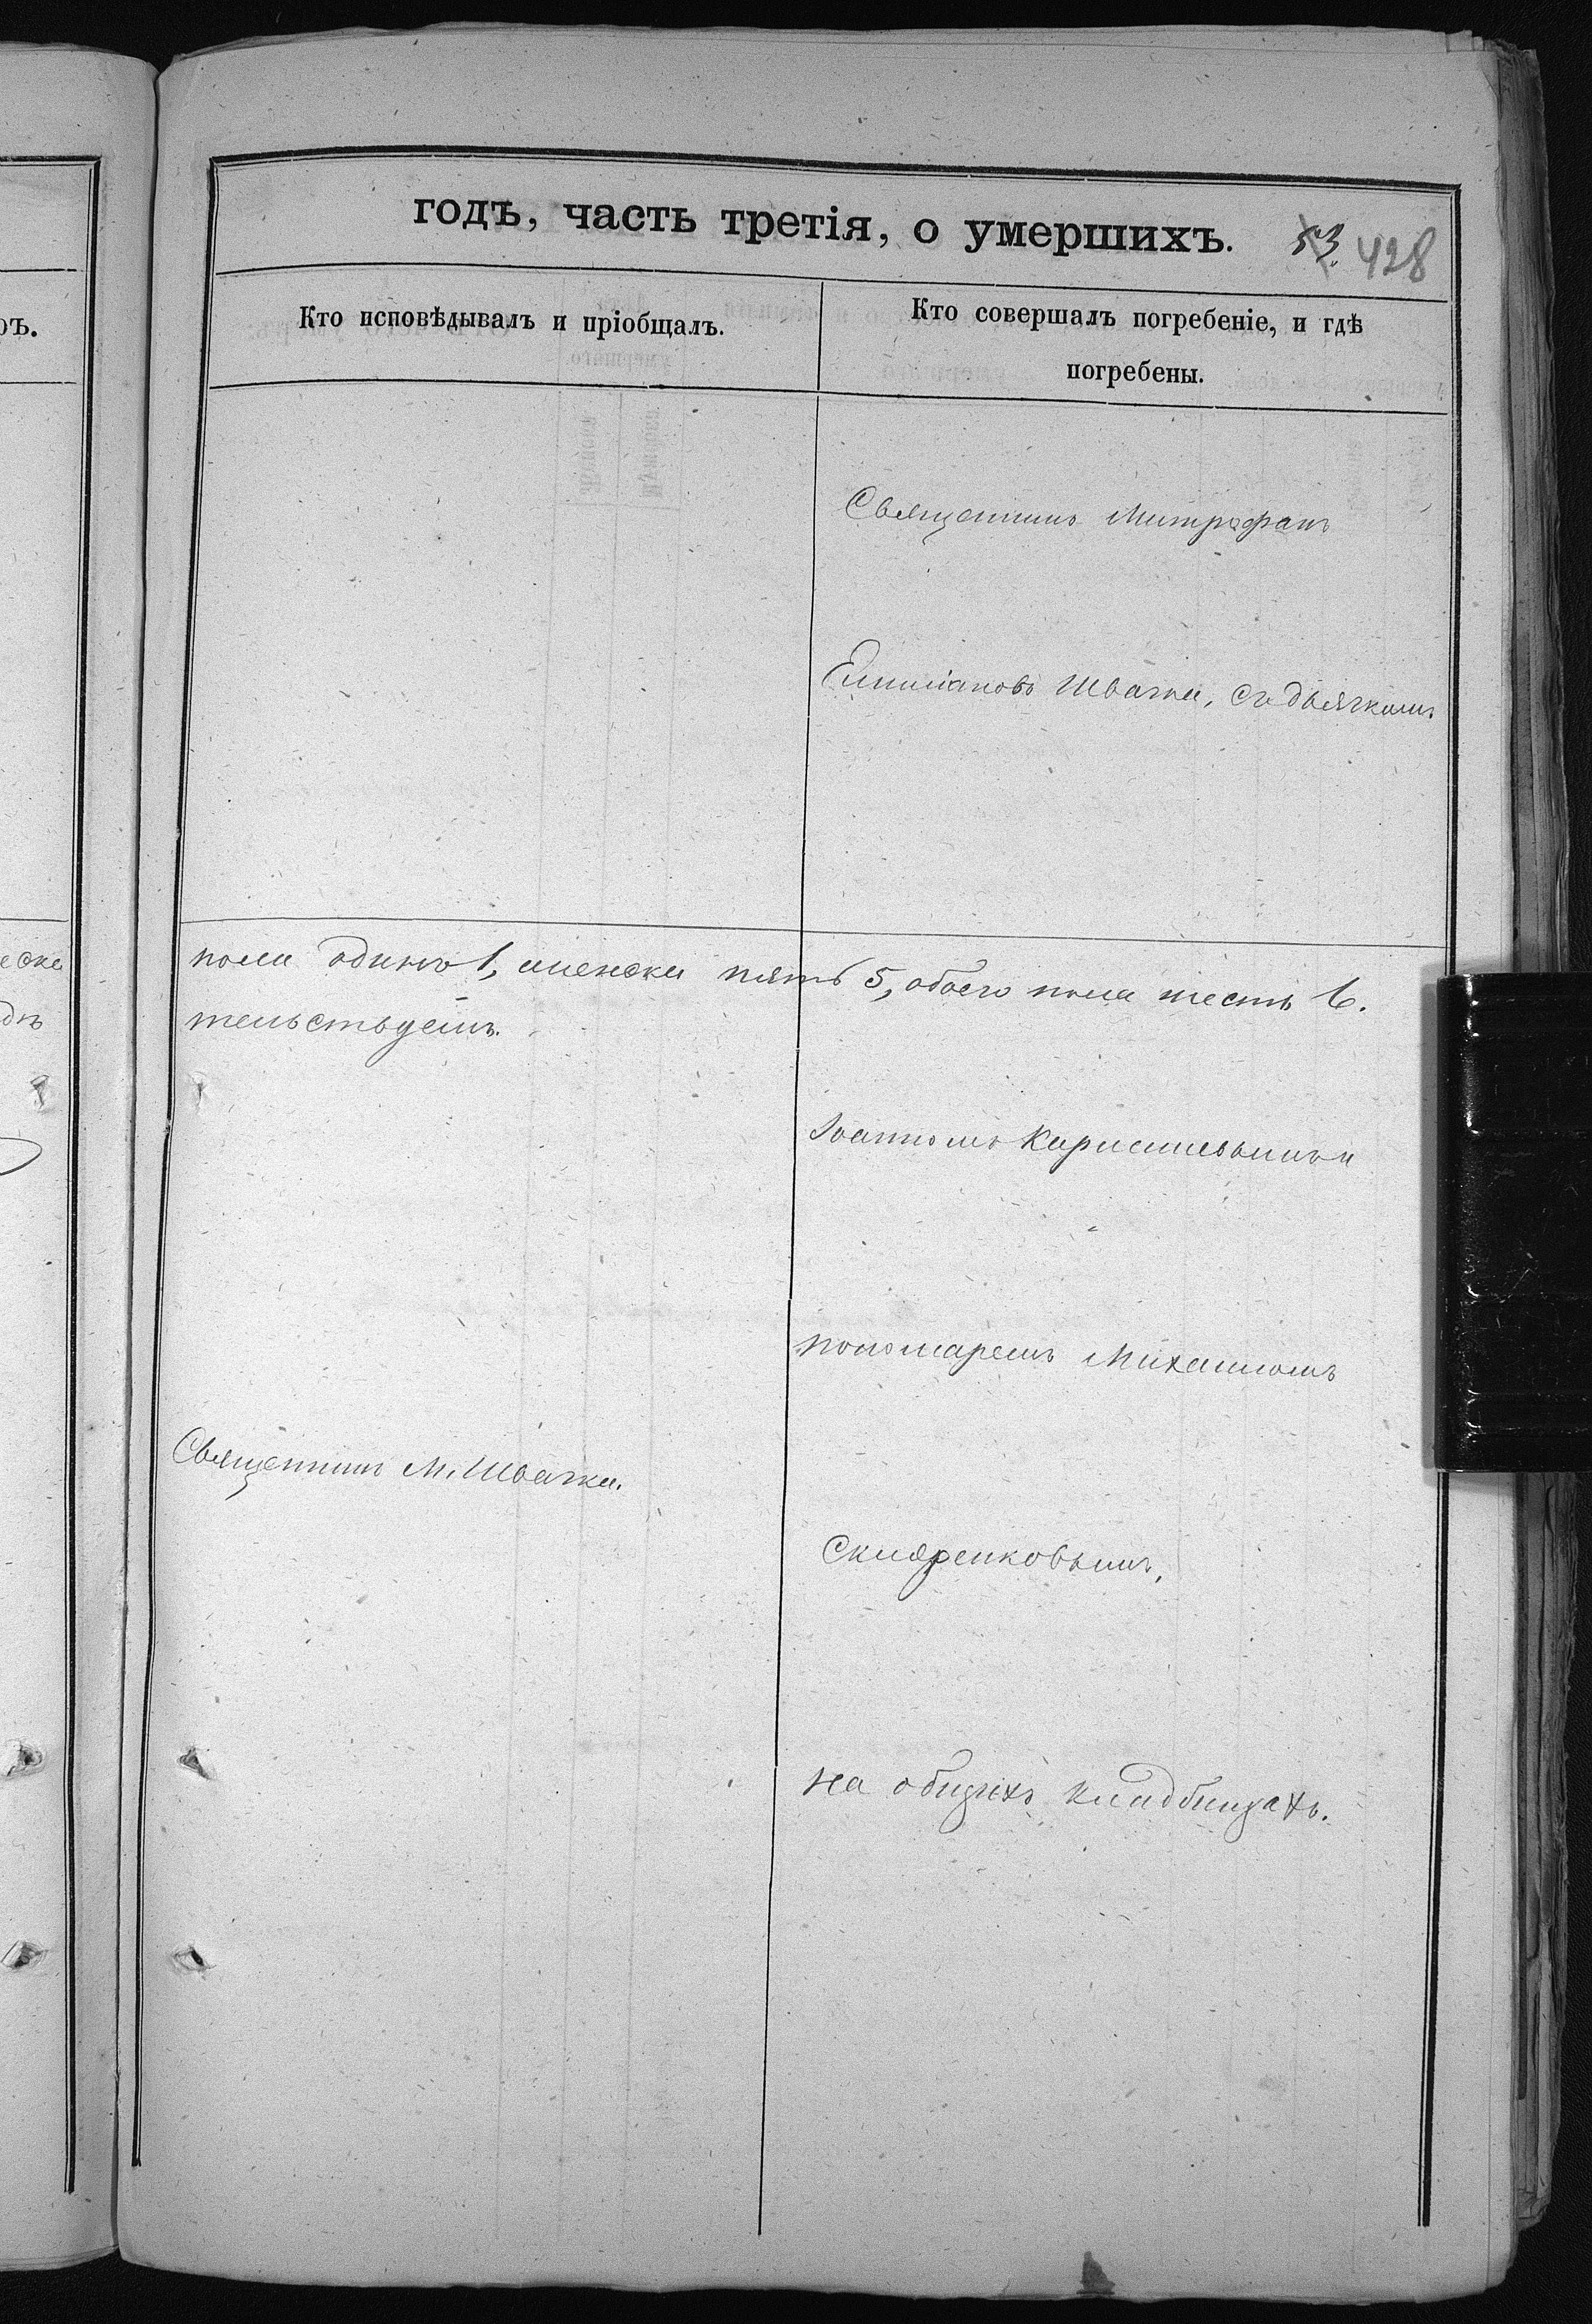 годъ, часть третія, о умершихъ.
53. 428
Кто исповѣдывалъ и пріобщалъ.
Кто совершалъ погребеніе, и гдѣ
погребены.
ръ.
Священникъ Митрофанъ
Емиліановъ Швачка, съ дьячкомъ
пола одинъ 1, женска пять 5, обоего пола шесть 6.
тельствуемъ.
Іоанномъ
пономаремъ Михаиломъ
Священникъ М. Швачка.
Скляренковымъ,
на общихъ кладбищахъ.